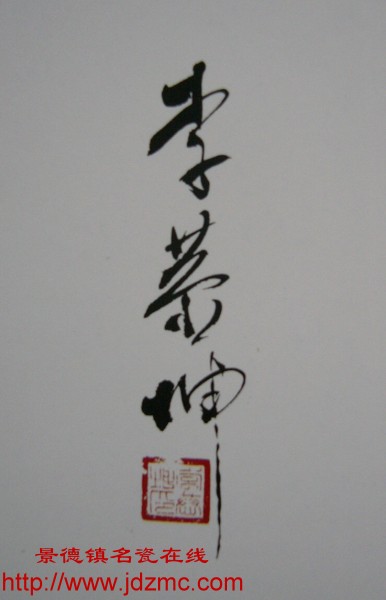 李恭坤
景德镇名瓷在线
http://www.jdzmc.com